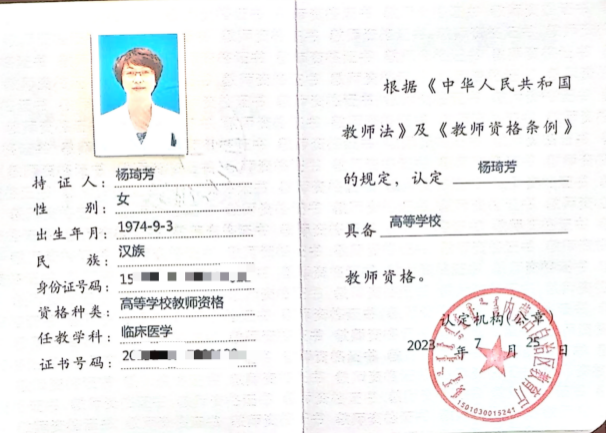 持 证 人：杨琦芳
性 别：女
出生年月：1974-9-3
民 族：汉族
身份证号码：15
资格种类：高等学校教师资格
任教学科：临床医学
证书号码：20
根据《中华人民共和国
教师法》及《教师资格条例》
的规定，认定 杨琦芳
具备 高等学校
教师资格。
认定机构(公章)
2023 年 7 月 25 日
内蒙古自治区教育厅